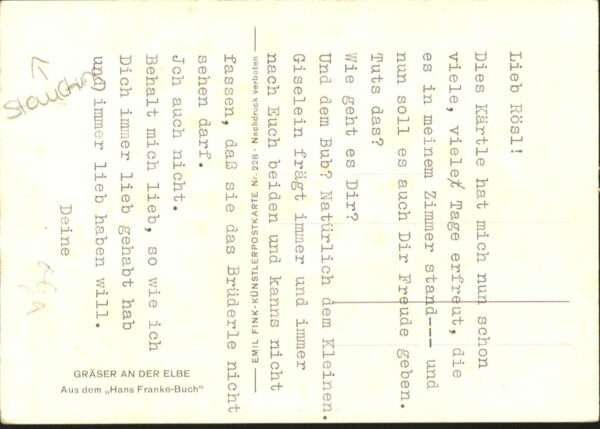 Lieb Rösl!
Dies Kärtle hat mich nun schon
viele, viele Tage erfreut, die
es in meinem Zimmer stand--- und
nun soll es auch Dir Freude geben.
Tuts das?
Wie geht es Dir?
Und dem Bub? Natürlich dem Kleinen.
Giselein frägt immer und immer
nach Euch beiden und kanns nicht
fassen, daß sie das Brüderle nicht
sehen darf.
Jch auch nicht.
Behalt mich lieb, so wie ich
Dich immer lieb gehabt hab
und immer lieb haben will.
Deine
EMIL FINK-KÜNSTLERPOSTKARTE Nr. 228 · Nachdruck verboten
GRÄSER AN DER ELBE
Aus dem „Hans Franke-Buch“